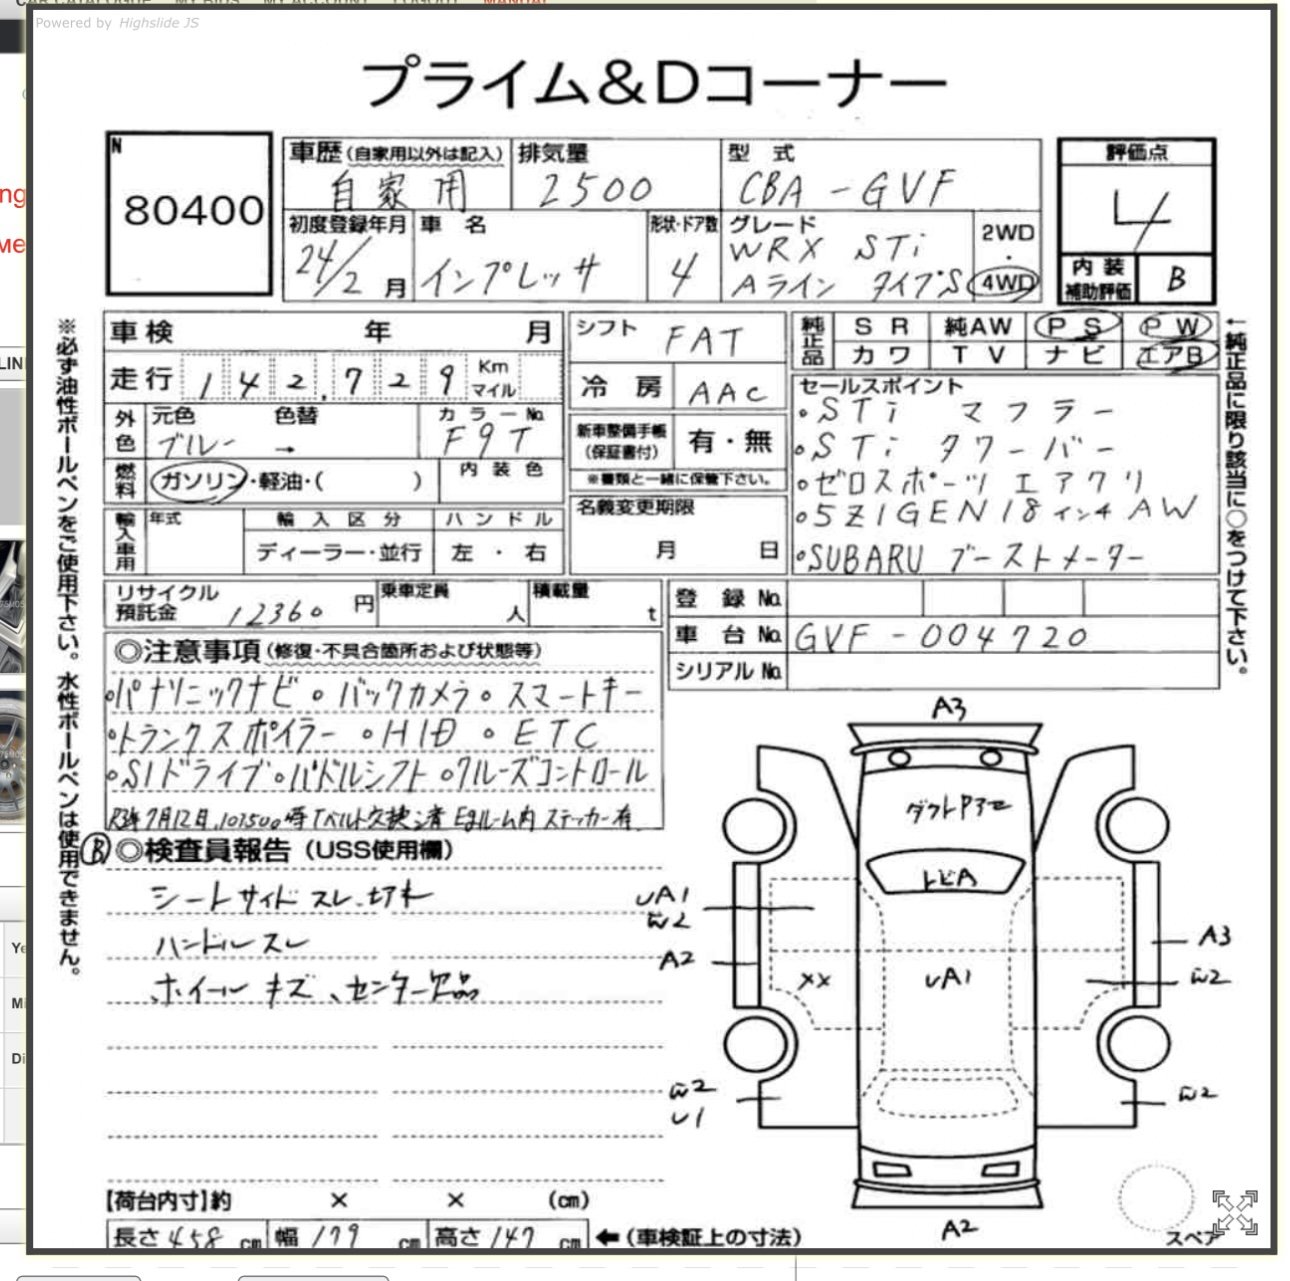 CAR CATALOGUE MY BIDS MY ACCOUNT LOGOUT MANUAL
Powered by Highslide JS
プライム&Dコーナー
N
80400
車歴(自家用以外は記入)
自家用
排気量
2500
型式
CBA-GVF
評価点
4
内装補助評価
B
初度登録年月
24/2月
車名
インプレッサ
形状・ドア数
4
グレード
WRX STi
Aライン タイプS
2WD
・
4WD
※必ず油性ボールペンをご使用下さい。水性ボールペンは使用できません。
車検 年 月
走行 142,729 Km マイル
外色 元色 色替 カラーNo.
ブルー → F9T
燃料 ガソリン・軽油・( ) 内装色
輸入車用 年式 輸入区分 ハンドル
ディーラー・並行 左・右
シフト FAT
冷房 AAC
新車整備手帳(保証書付) 有・無
※書類と一緒に保管下さい。
名義変更期限
月 日
純正品 SR 純AW PS PW
カワ TV ナビ エアB
セールスポイント
・STi マフラー
・STi タワーバー
・ゼロスポーツ エアクリ
・5ZIGEN 18インチ AW
・SUBARU ブーストメーター
←純正品に限り該当に○をつけて下さい。
リサイクル預託金 12360円
乗車定員 人
積載量 t
登録No.
車台No. GVF-004720
シリアルNo.
◎注意事項(修復・不具合箇所および状態等)
・パナソニックナビ・バックカメラ・スマートキー
・トランクスポイラー ・HID ・ETC
・SIドライブ・パドルシフト・クルーズコントロール
R3年7月12日.107500時Tベルト交換済 Egルーム内 ステッカー有
Ⓑ◎検査員報告(USS使用欄)
シートサイド スレ.切れ
ハンドルスレ
ホイール キズ、センター欠品
A3
ダクトP
トビA
UA1
W2
A2
XX
UA1
A3
W2
W2
U1
W2
A2
スペア
【荷台内寸】約 × × (cm)
長さ 458 cm 幅 179 cm 高さ 147 cm ←(車検証上の寸法)